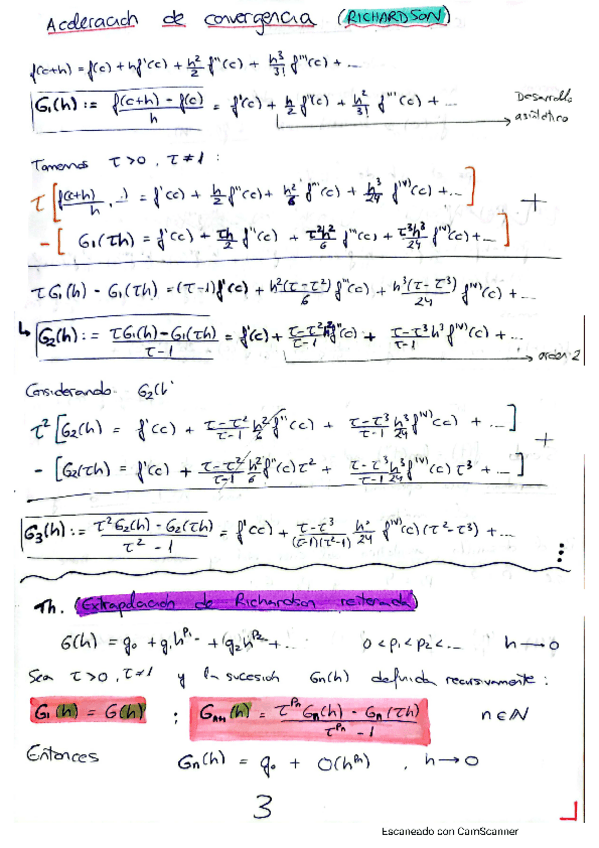 Aceleración de convergencia (RICHARDSON)
f(c+h) = f(c) + hf'(c) + h²/2 f''(c) + h³/3! f'''(c) + ...
G₁(h) := (f(c+h) - f(c))/h = f'(c) + h/2 f''(c) + h²/3! f'''(c) + ...
Desarrollo
asintótico
Tomemos τ>0, τ≠1 :
τ [ f(c+h)/h ...) = f'(c) + h/2 f''(c) + h²/6 f'''(c) + h³/24 f^(IV)(c) + ... ] +
- [ G₁(τh) = f'(c) + τh/2 f''(c) + τ²h²/6 f'''(c) + τ³h³/24 f^(IV)(c) + ... ]
τG₁(h) - G₁(τh) = (τ-1)f'(c) + h²(τ-τ²)/6 f'''(c) + h³(τ-τ³)/24 f^(IV)(c) + ...
↳ G₂(h) := (τG₁(h) - G₁(τh))/(τ-1) = f'(c) + (τ-τ²)/(τ-1) f'''(c) + (τ-τ³)/(τ-1) h³ f^(IV)(c) + ...
orden 2
Considerando G₂(h
τ² [ G₂(h) = f'(c) + (τ-τ²)/(τ-1) h²/6 f'''(c) + (τ-τ³)/(τ-1) h³/24 f^(IV)(c) + ... ] +
- [ G₂(τh) = f'(c) + (τ-τ²)/(τ-1) h²/6 f'''(c) τ² + (τ-τ³)/(τ-1) h³/24 f^(IV)(c) τ³ + ... ]
G₃(h) := (τ²G₂(h) - G₂(τh))/(τ²-1) = f'(c) + (τ-τ³)/((τ-1)(τ²-1)) h³/24 f^(IV)(c) (τ²-τ³) + ...
⋮
Th. (Extrapolación de Richardson reiterada)
G(h) = g₀ + g₁h^p₁ + g₂h^p₂ + ... 0 < p₁ < p₂ < ... h → 0
Sea τ>0, τ≠1 y la sucesión Gn(h) definida recursivamente :
G₁(h) = G(h) ; Gₙ₊₁(h) = (τ^pₙ Gₙ(h) - Gₙ(τh))/(τ^pₙ - 1) n∈ℕ
Entonces Gₙ(h) = g₀ + O(h^pₙ) , h → 0
3
Escaneado con CamScanner